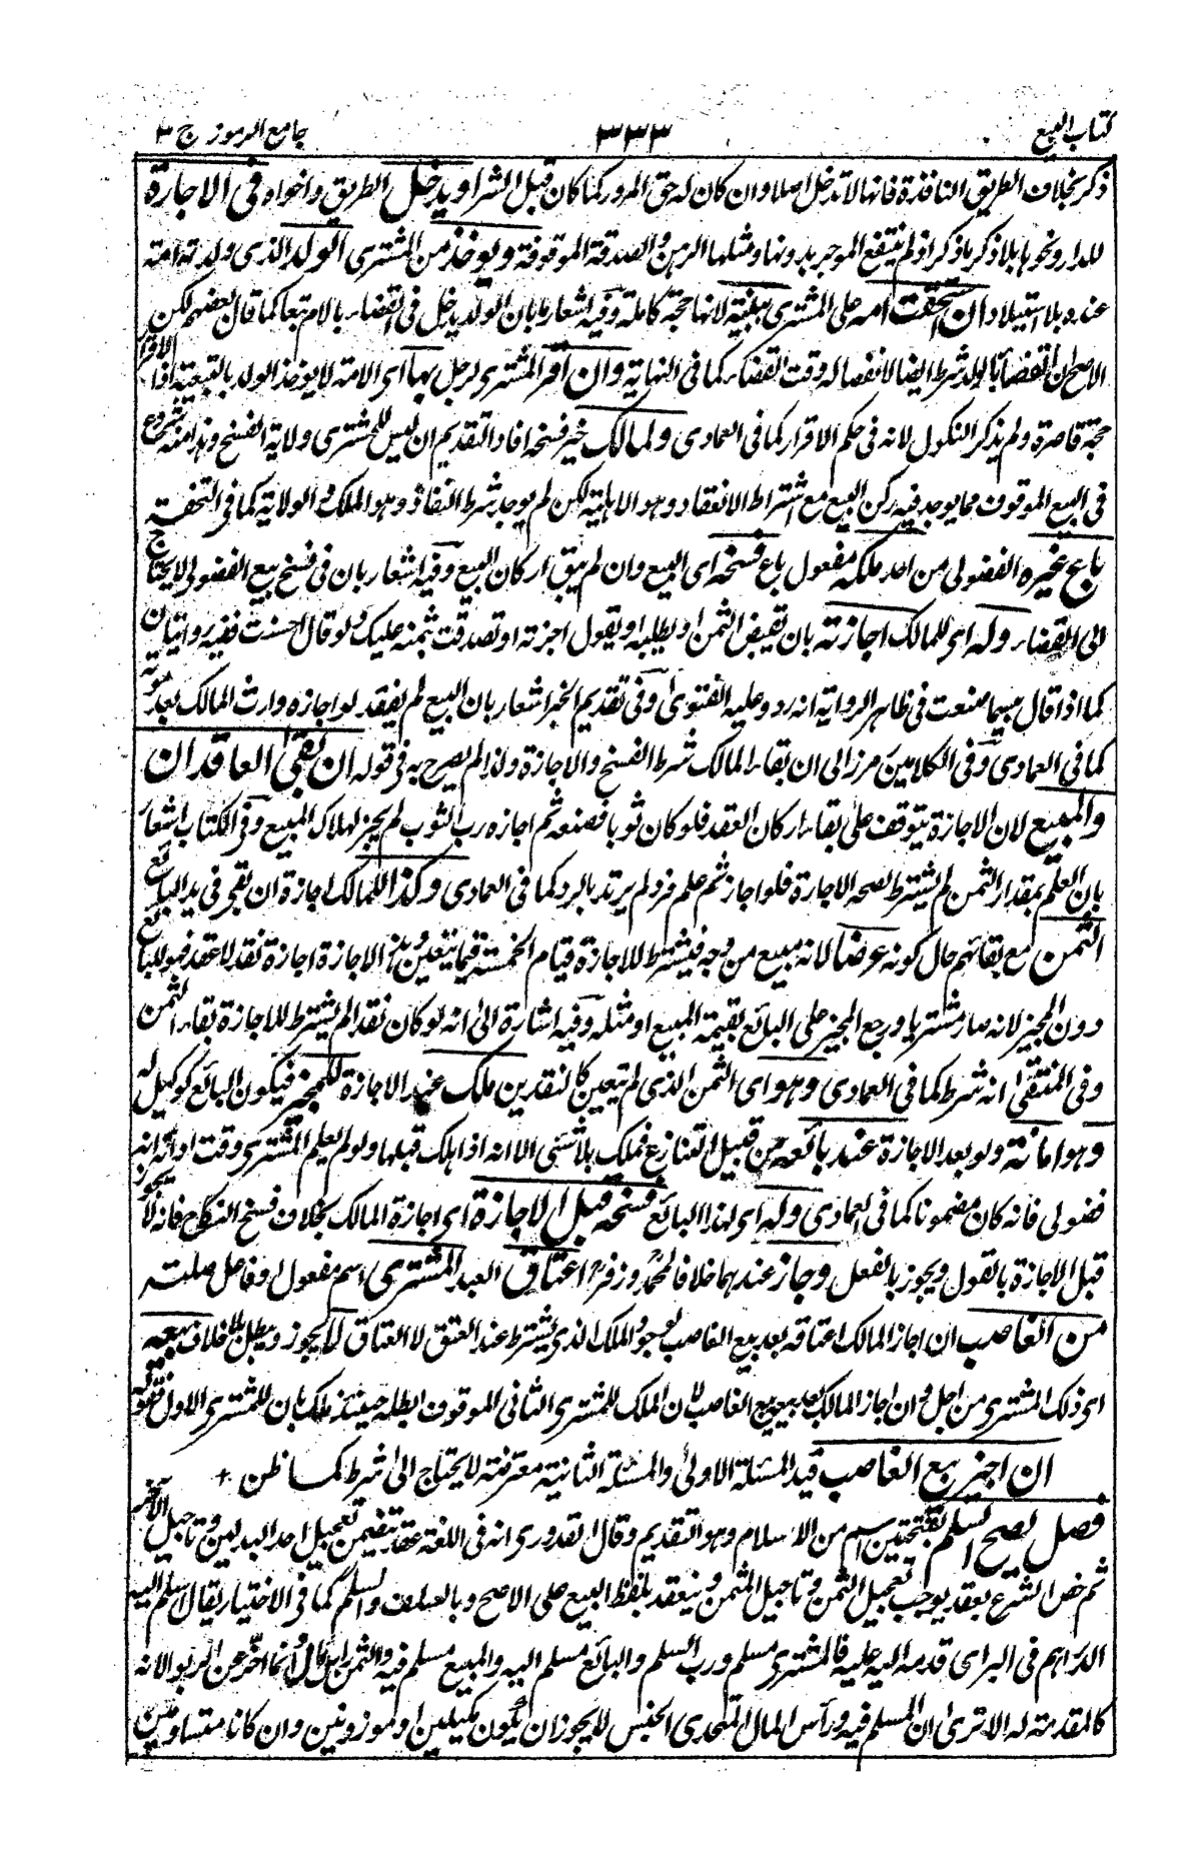 كتاب البيع
٣٣٣
جامع الرموز ج ٣
ذكر بخلاف الطريق النافذة فانها لا تدخل اصلا وان كان له حق المرور كما كان قبل الشرا ويدخل الطريق واخواه فى الاجارة
للدار ونحوها بلا ذكر ما ذكر اذ لم ينتفع الموجر بدونها ومثلها الرهن والصدقة الموقوفة ويوخذ من المشترى الولد الذى ولدته امته
عنده بلا استيلاد ان استحقت امه على المشترى ببينة لانها حجة كاملة وفيه اشعار بان الولد يدخل فى القضاء بالام تبعا كما قال بعضهم لكن
الاصح ان القضا بالولد شرط ايضا لانفصاله وقت القضاء كما فى النهاية وان اقر المشترى لرجل بها اى الامة لا يوخذ الولد بالتبعية اذا الاقرار
حجة قاصرة ولم يذكر النكول لانه فى حكم الاقرار كما فى العمادى ولمالك خير فسخه افاد التقديم ان ليس للمشترى ولاية الفسخ وهذا منه شروع
فى البيع الموقوف مما يوجد فيه ركن البيع مع اشتراط الانعقاد وهو الاهلية لكن لم يوجد شرط النفاذ وهو الملك والولاية كما فى التحفة
باع غيره الفضولى من احد ملكه مفعول باع فسخه اى البيع وان لم يبق اركان البيع وفيه اشعار بان فى فسخ بيع الفضولى لا يحتاج
الى القضاء وله اى للمالك اجازته بان يقبض الثمن او يطلبه او يقول اجزته او تصدقت بثمنه عليك ولو قال احسنت ففيه روايتان
كما اذا قال بيسما صنعت فى ظاهر الرواية انه رد وعليه الفتوى وفى تقديم الخبر اشعار بان البيع لم ينفقد لو اجازه وارث المالك بعد موته
كما فى العمادى وفى الكلامين رمز الى ان بقاء المالك شرط الفسخ والاجازة ولذا لم يصرح به فى قوله ان بقى العاقدان
والمبيع لان الاجازة يتوقف على بقاء اركان العقد فلو كان ثوبا فصبغه ثم اجازه رب الثوب لم يجز لهلاك المبيع وفى الكتاب اشعار
بان العلم بمقدار الثمن لم يشترط لصحة الاجازة فلو اجاز ثم علم فرد لم يرتد بالرد كما فى العمادى وكذا للمالك اجازة ان بقى فى يد البائع
الثمن مع بقائهم حال كونه عرضا لانه مبيع من وجه فيشترط للاجازة قيام الخمسة فيما يتعين وهذه الاجازة اجازة نقد لا عقد فهو للبائع
دون المجيز لانه صار مشتريا ورجع المجيز على البائع بقيمة المبيع او مثله وفيه اشارة الى انه لو كان نقدا لم يشترط للاجازة بقاء الثمن
وفى المنتقى انه شرط كما فى العمادى وهو اى الثمن الذى لم يتعين كالنقدين ملك عند الاجازة للمجيز فيكون البائع كوكيل له
وهو امانة ولو بعد الاجازة عند بائعه من قبيل التنازع فملك بلا شئى الا انه اذا هلك قبلها ولو لم يعلم المشترى وقت ادائه انه
فضولى فانه كان مضمونا كما فى العمادى وله اى لهذا البائع فسخه قبل الاجازة اى اجازة المالك بخلاف فسخ النكاح فانه لا يجوز
قبل الاجازة بالقول ويجوز بالفعل وجاز عندهما خلافا لمحمد وزفر اعتاق العبد المشترى اسم مفعول او فاعل صلته
من الغاصب ان اجاز المالك اعتاقه بعد بيع الغاصب لوجود الملك الذى يشترط عند العتق لا العتاق لا يجوز ويبطل بلا خلاف بيعه
اى ذلك المشترى من اجل وان اجاز المالك بعد بيعه بيع الغاصب لان الملك للمشترى الثانى الموقوف ابطله حينئذ ملك بات للمشترى الاول فقوله
ان اجيز بيع الغاصب قيد المسئلة الاولى والمسئلة الثانية معترضة لا يحتاج الى شرط كما ظن +
فصل يصح السلم بفتحتين اسم من الاسلام وهو التقديم وقال القدورى انه فى اللغة عقد يتضمن تعجيل احد البدلين وتاجيل الاخر
ثم خص الشرع بعقد يوجب تعجيل الثمن وتاجيل المثمن وينعقد بلفظ البيع على الاصح وبالسلف والسلم كما فى الاختيار يقال اسلم اليه
الدراهم فى البر اى قدمه اليه عليه فالمشترى مسلم ورب السلم والبائع مسلم اليه والمبيع مسلم فيه والثمن راس المال وانما اخر عن الربوا لانه
كالمقدمة له الا ترى ان المسلم فيه ورأس المال المتحدى الجنس لا يجوز ان يكون مكيلين او موزونين وان كانا متساويين